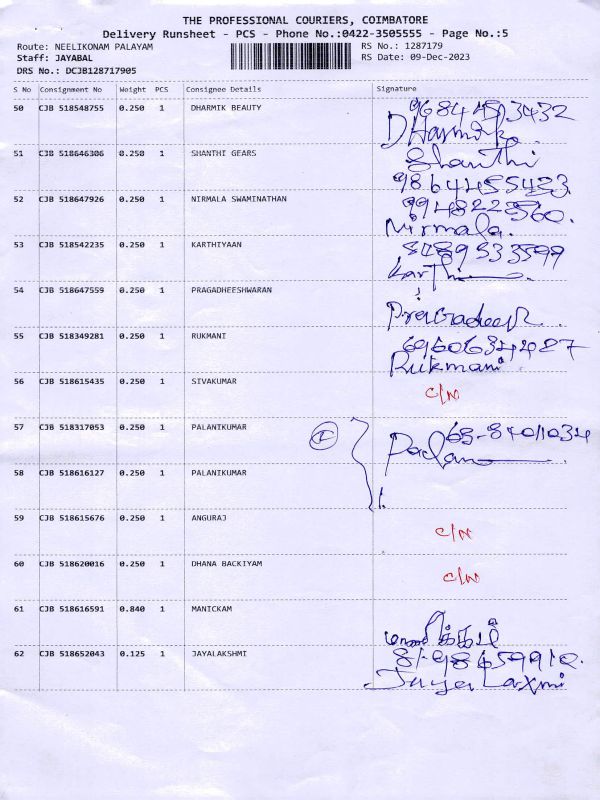 THE PROFESSIONAL COURIERS, COIMBATORE
Delivery Runsheet - PCS - Phone No.:0422-3505555 - Page No.:5
Route: NEELIKONAM PALAYAM RS No.: 1287179
Staff: JAYABAL RS Date: 09-Dec-2023
DRS No.: DCJB128717905
S No Consignment No Weight PCS Consignee Details Signature
50 CJB 518548755 0.250 1 DHARMIK BEAUTY
Dharmik
51 CJB 518646306 0.250 1 SHANTHI GEARS Shanthi
9864455423
52 CJB 518647926 0.250 1 NIRMALA SWAMINATHAN
Nirmala.
53 CJB 518542235 0.250 1 KARTHIYAAN 8489533599
Karthi
54 CJB 518647559 0.250 1 PRAGADHEESHWARAN
PraGadeep
55 CJB 518349281 0.250 1 RUKMANI
Rukmani
56 CJB 518615435 0.250 1 SIVAKUMAR C/N
57 CJB 518317053 0.250 1 PALANIKUMAR
58 CJB 518616127 0.250 1 PALANIKUMAR
59 CJB 518615676 0.250 1 ANGURAJ C/N
60 CJB 518620016 0.250 1 DHANA BACKIYAM C/N
61 CJB 518616591 0.840 1 MANICKAM
62 CJB 518652043 0.125 1 JAYALAKSHMI
Jaya Laxmi